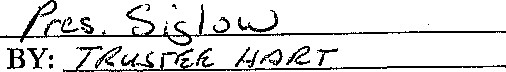 Pres. Siglow
BY: TRUSTEE HART